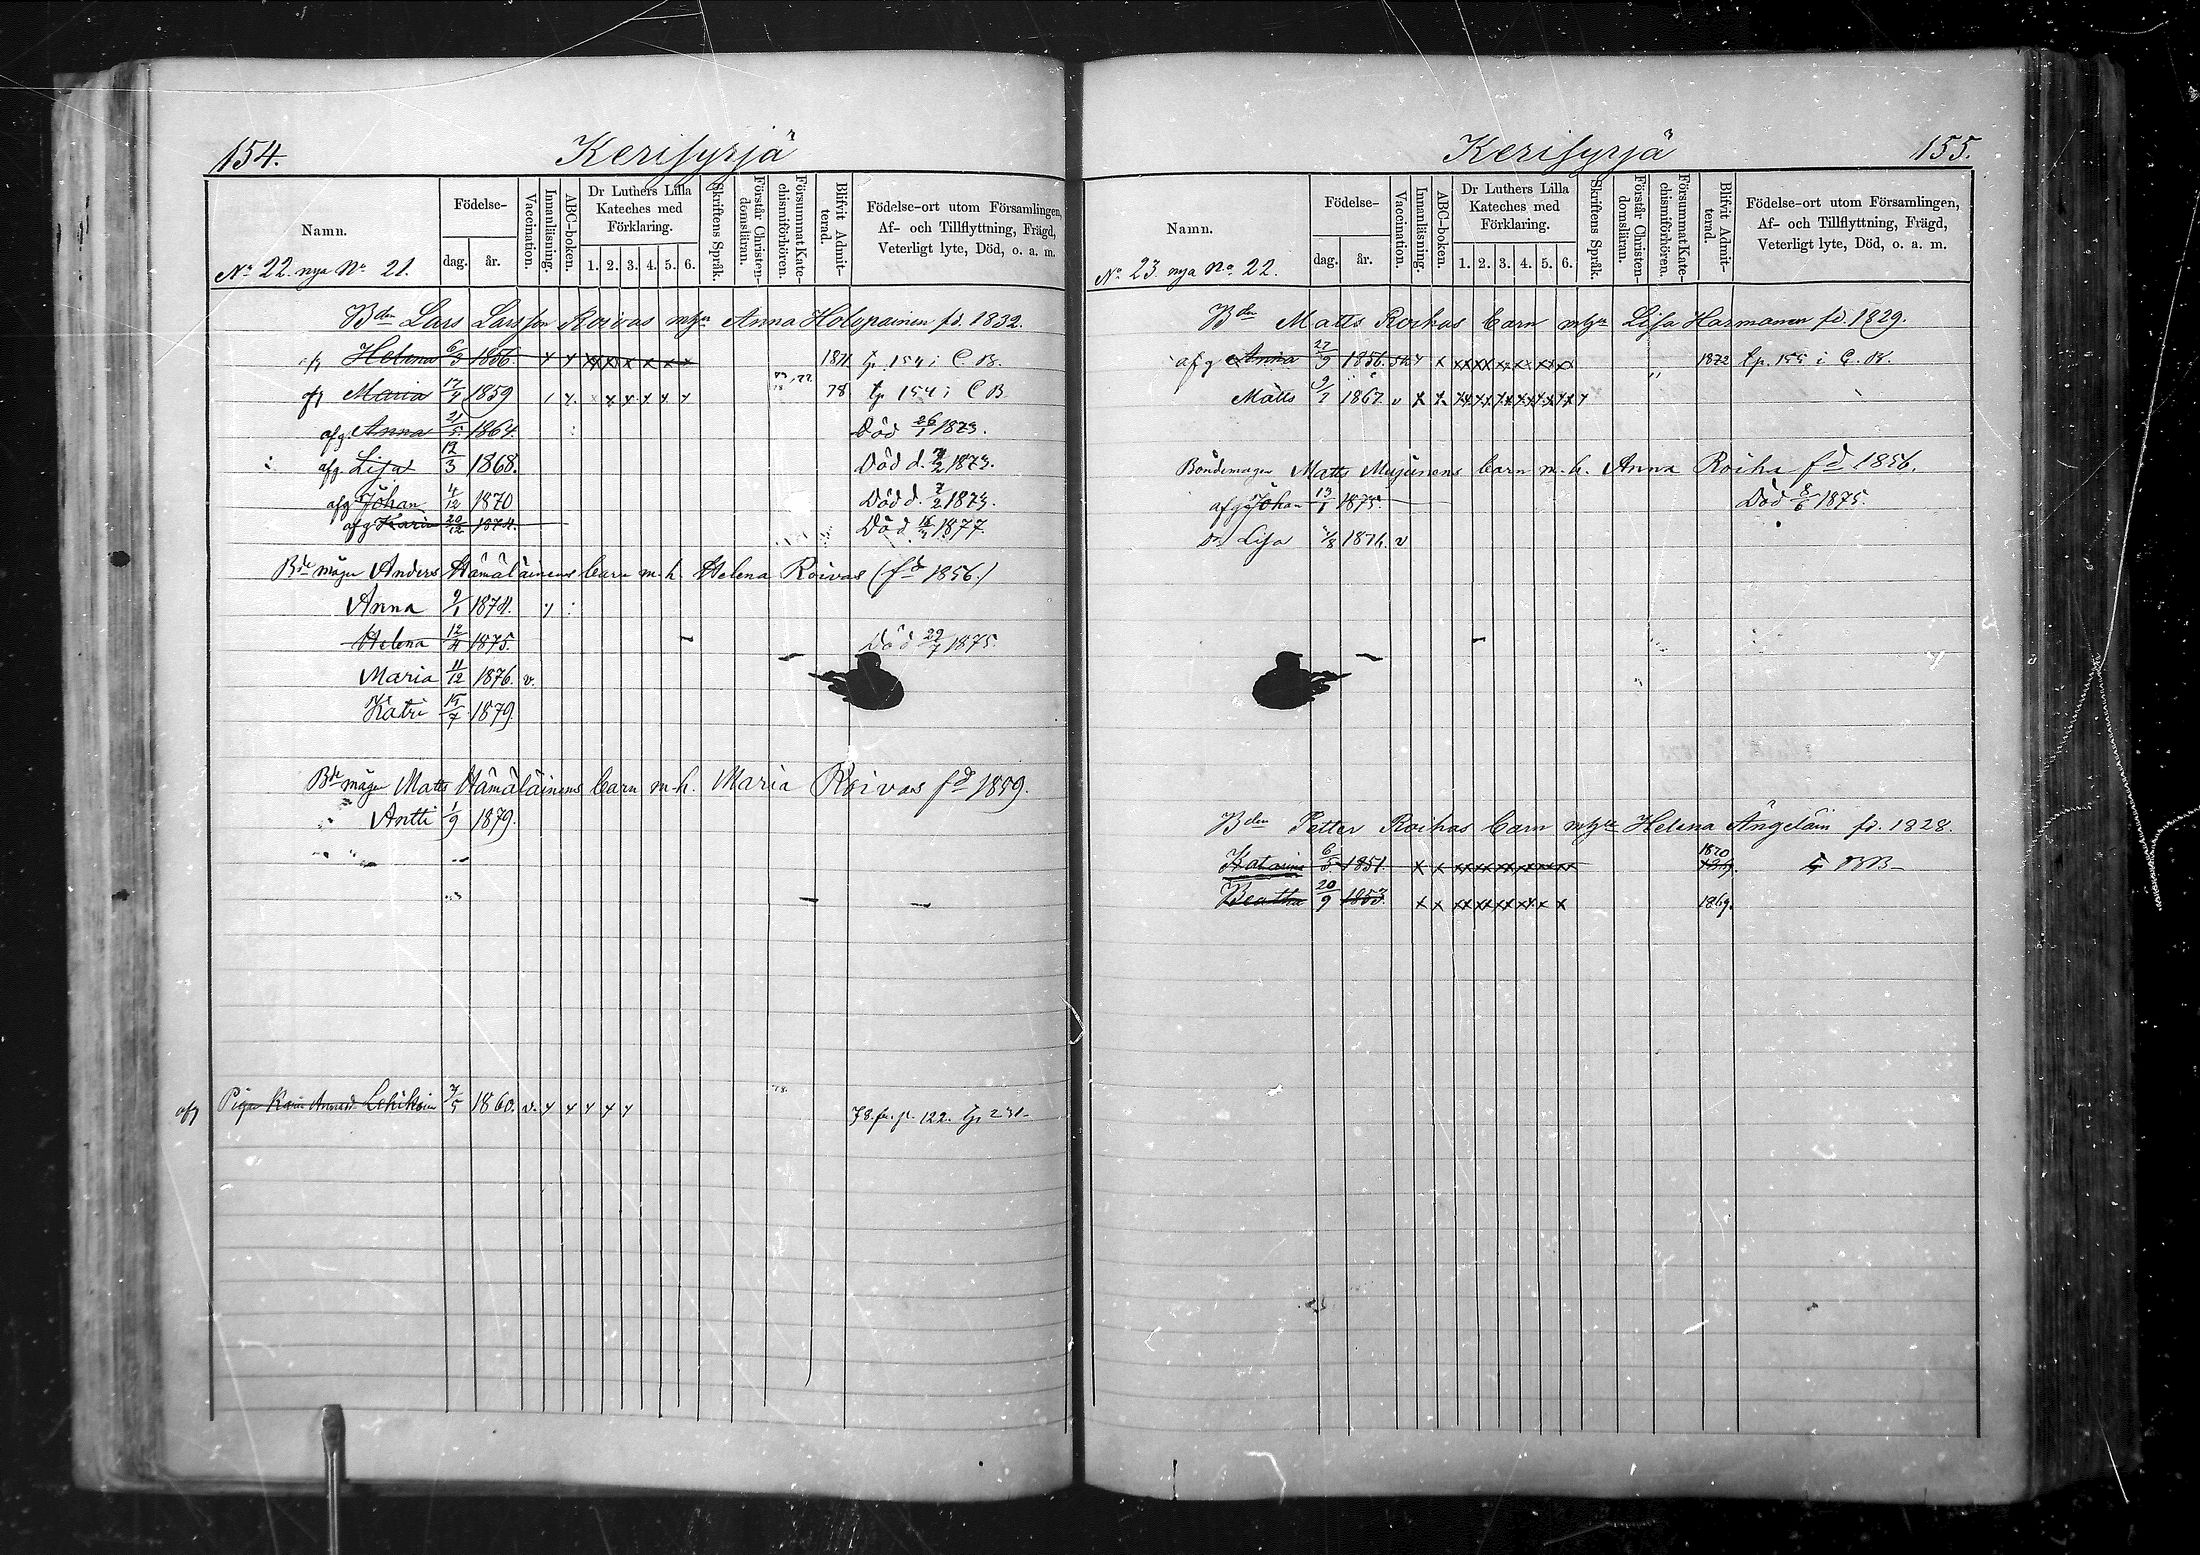 154.
Kerisyrjä
Namn.
Födelse-
dag. år.
Vaccination.
Innanläsning.
ABC-boken.
Dr Luthers Lilla Kateches med Förklaring.
1. 2. 3. 4. 5. 6.
Skriftens Språk.
Förstår Christendomsläran.
Försummat Katechismiförhören.
Blifvit Admitterad.
Födelse-ort utom Församlingen,
Af- och Tillflyttning, Frägd,
Veterligt lyte, Död, o. a. m.
No 22. nya No 21.
Bden Lars Larsson Roivas m hu Anna Holopainen fd. 1832.
Helena 6/3 1856. x x x x x x x x 1871 tp. 154 i C B.
Maria 17/4 1859 78 tp 154 i C B
afg. Anna 21/5 1864. Död 26/1 1873.
afg Lisa 12/3 1868. Död d. 1873.
afg Johan 4/12 1870 Död d. 7/2 1873.
afg Karin 20/12 Död 1877.
Bde mågen Anders Hämäläinens barn m. h. Helena Roivas (fd 1856.)
Anna 9/1 1874.
Helena 12/4 1875. Död 29/7 1875.
Maria 11/12 1876. v.
Katri 15/7 1879.
Bde mågen Matts Hämäläinens barn m. h. Maria Roivas fd 1859.
Antti 1/9 1879.
afg Pigan Karin Lehikoin 7/5 1860. v. 78. fr. p. 122. tp 231
Kerisyrjä
155.
Namn.
Födelse-
dag. år.
Vaccination.
Innanläsning.
ABC-boken.
Dr Luthers Lilla Kateches med Förklaring.
1. 2. 3. 4. 5. 6.
Skriftens Språk.
Förstår Christendomsläran.
Försummat Katechismiförhören.
Blifvit Admitterad.
Födelse-ort utom Församlingen,
Af- och Tillflyttning, Frägd,
Veterligt lyte, Död, o. a. m.
No 23. nya No 22.
Bden Matts Roihas barn Lisa Harmanen fd. 1829.
afg Anna 27/9 1856. 1872 tp. 155 i C. B.
Matts 9/1 1867. v
Bondemågen Matts Mujunens barn m. h. Anna Roiha fd 1856.
afg Johan 13/1 1875. Död 8/6 1875.
Lisa 1876. v
Bden Petter Roihas barn Helena Ängeläin fd. 1828.
Katarina 6/5 1851. 1870 BB
Beatha 20/9 1853. 1869.